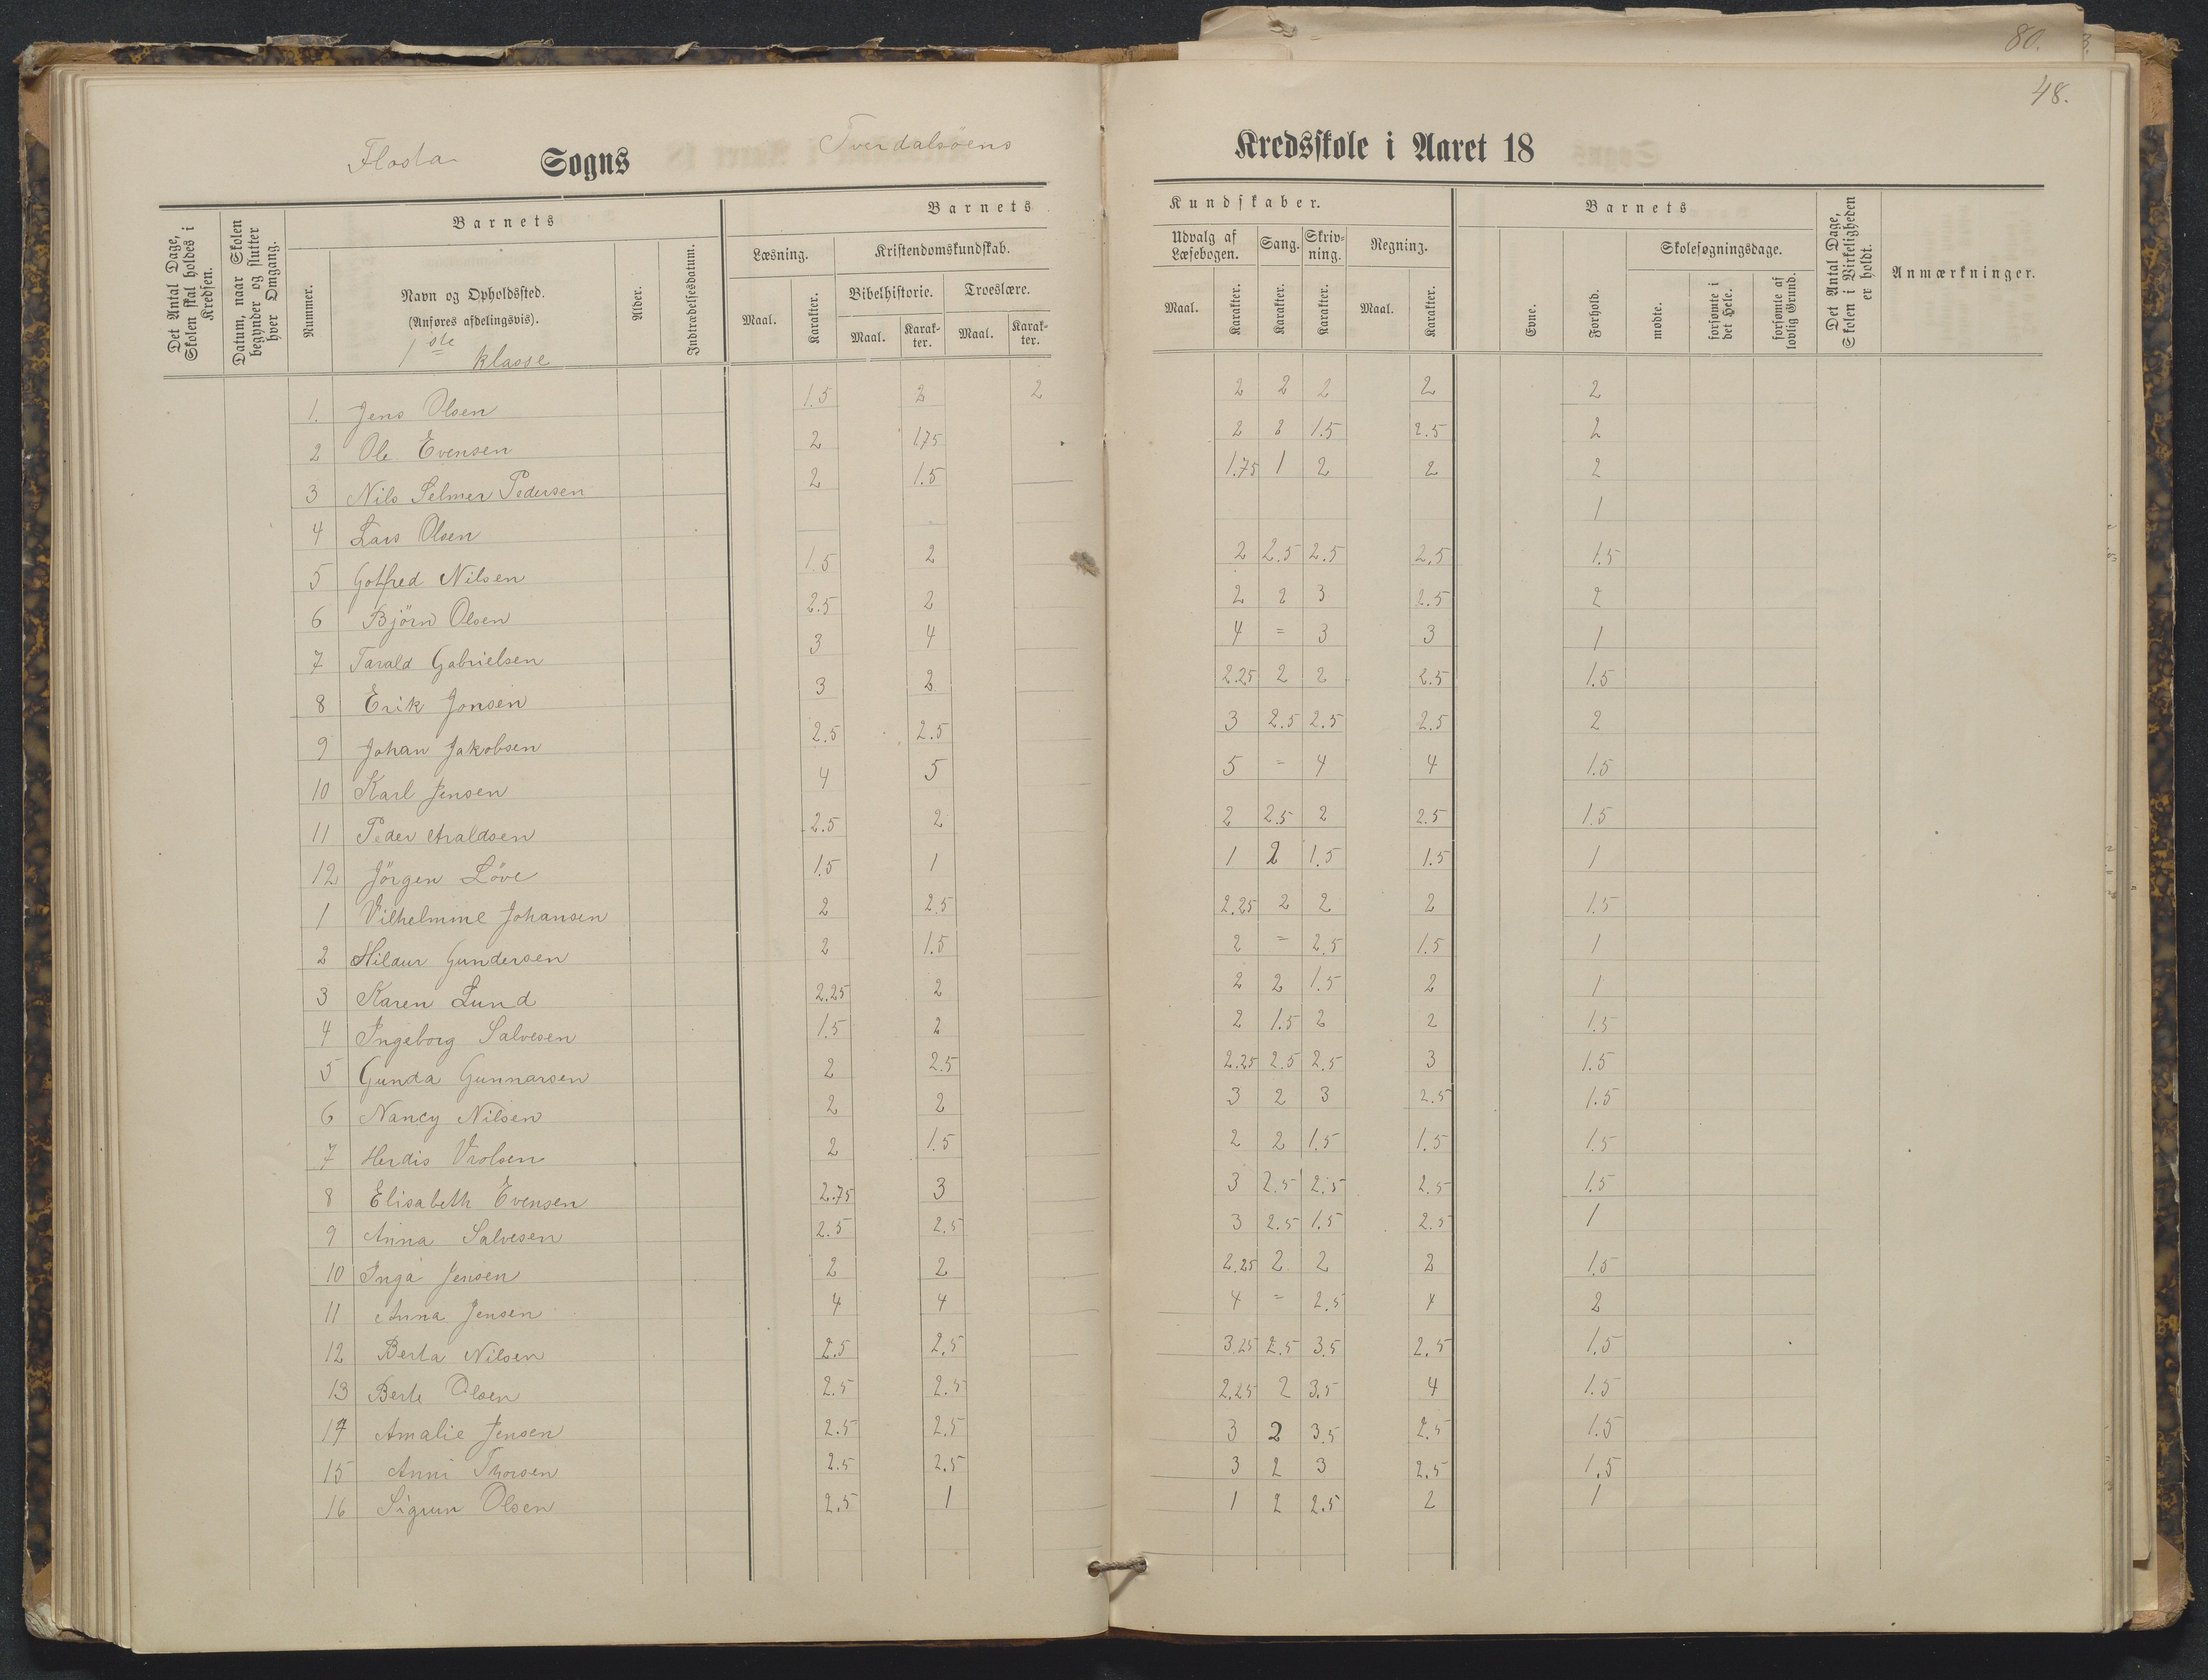 80.
48.
Flosta Sogns Tverdalsöens Kredsskole i Aaret 18
Det Antal Dage, Skolen skal holdes i Kredsen.
Datum, naar Skolen begynder og slutter hver Omgang.
Barnets
Nummer.
Navn og Opholdssted.
(Anføres afdelingsvis).
1ste klasse
Alder.
Indtrædelsesdatum.
Barnets Kundskaber.
Læsning. Kristendomskundskab. Udvalg af Læsebogen. Sang. Skrivning. Regning.
Bibelhistorie. Troeslære.
Maal. Karakter. Maal. Karakter. Maal. Karakter. Maal. Karakter. Karakter. Karakter. Maal. Karakter.
Barnets
Evne. Forhold. Skolesøgningsdage.
mødte. forsømte i det Hele. forsømte af lovlig Grund.
Det Antal Dage, Skolen i Virkeligheden er holdt.
Anmærkninger.
1. Jens Olsen 1.5 2 2 2 2 2 2 2
2 Ole Evensen 2 1.75 2 2 1.5 2.5 2
3 Nils Selmer Pedersen 2 1.5 1.75 1 2 2 2
4 Lars Olsen 1
5 Gotfred Nilsen 1.5 2 2 2.5 2.5 2.5 1.5
6 Björn Olsen 2.5 2 2 2 3 2.5 2
7 Tarald Gabrielsen 3 4 4 = 3 3 1
8 Erik Jonsen 3 2 2.25 2 2 2.5 1.5
9 Johan Jakobsen 2.5 2.5 3 2.5 2.5 2.5 2
10 Karl Jensen 4 5 5 = 4 4 1.5
11 Peder Araldsen 2.5 2 2 2.5 2 2.5 1.5
12 Jörgen Löve 1.5 1 1 2 1.5 1.5 1
1 Vilhelmine Johansen 2 2.5 2.25 2 2 2 1.5
2 Hildur Gundersen 2 1.5 2 = 2.5 1.5 1
3 Karen Lund 2.25 2 2 2 1.5 2 1
4 Ingeborg Salvesen 1.5 2 2 1.5 2 2 1.5
5 Gunda Gunnarsen 2 2.5 2.25 2.5 2.5 3 1.5
6 Nancy Nilsen 2 2 3 2 3 2.5 1.5
7 Herdis Vrolsen 2 1.5 2 2 1.5 1.5 1.5
8 Elisabeth Evensen 2.75 3 3 2.5 2.5 2.5 1.5
9 Anna Salvesen 2.5 2.5 3 2.5 1.5 2.5 1
10 Inga Jensen 2 2 2.25 2 2 2 1.5
11 Anna Jensen 4 4 4 = 2.5 4 2
12 Berta Nilsen 2.5 2.5 3.25 2.5 3.5 2.5 1.5
13 Berte Olsen 2.5 2.5 2.25 2 3.5 4 1.5
14 Amalie Jensen 2.5 2.5 3 2 3.5 2.5 1.5
15 Anni Thorsen 2.5 2.5 3 2 3 2.5 1.5
16 Sigrun Olsen 2.5 1 1 2 2.5 2 1